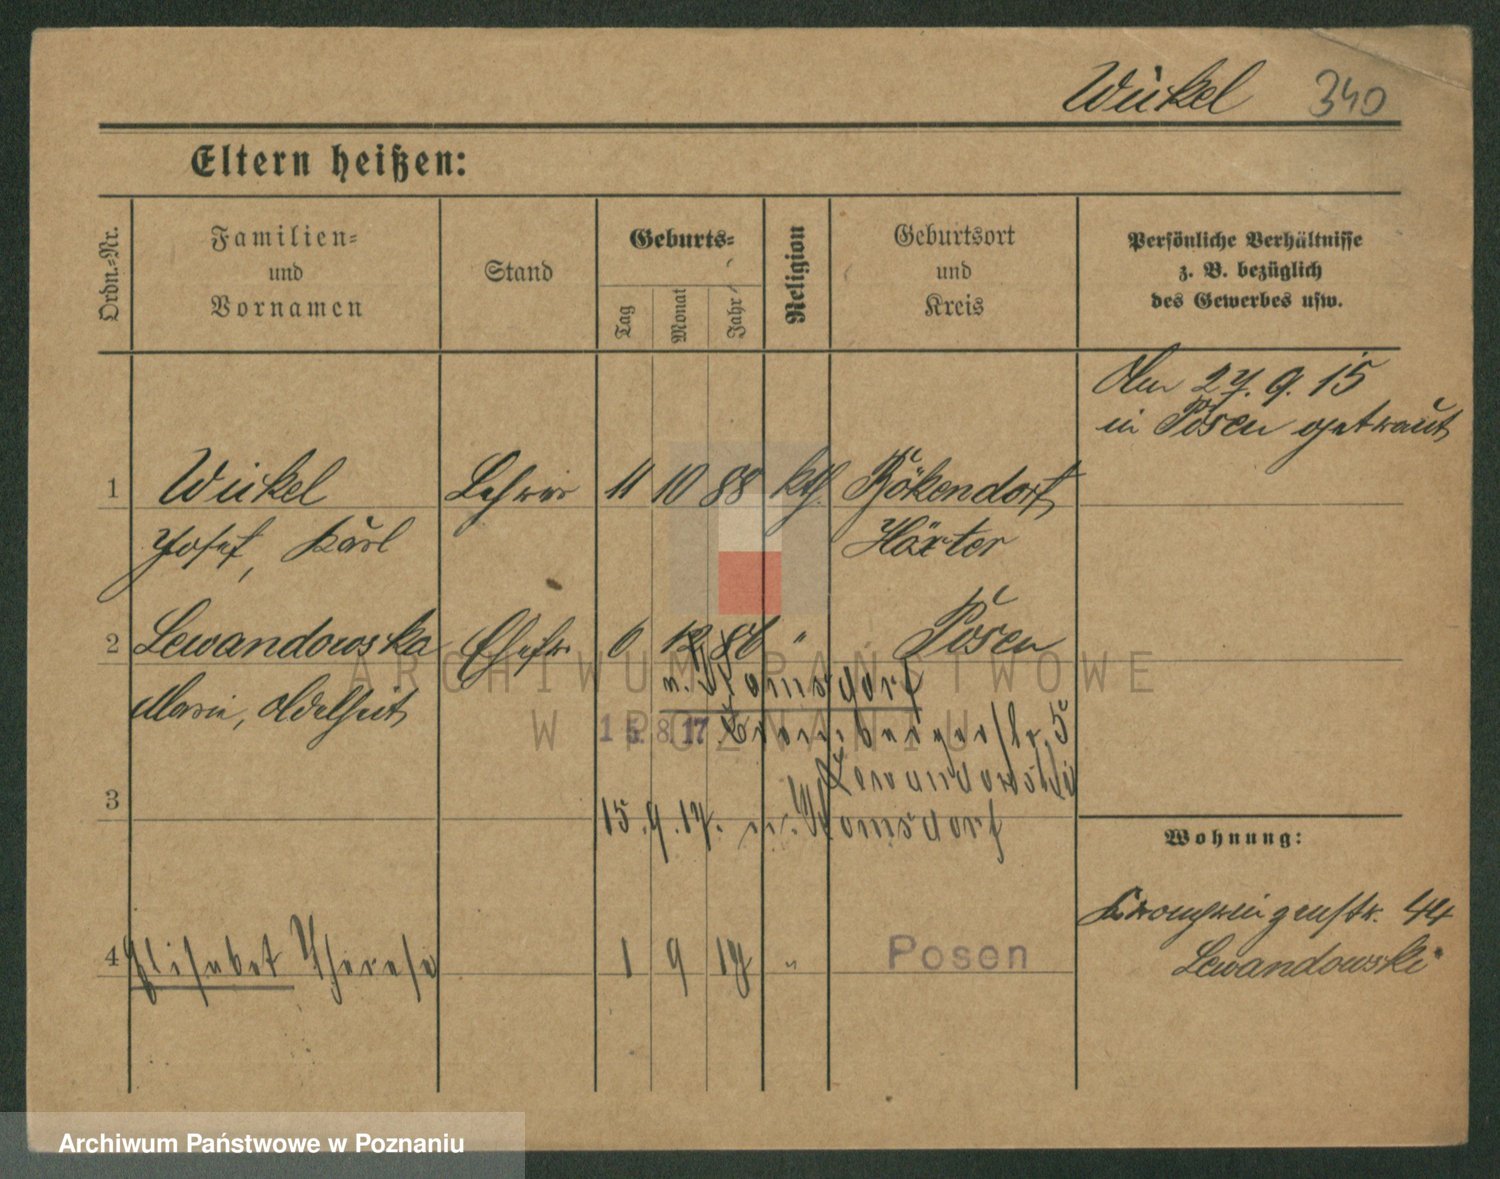 Wükel 340
Eltern heißen:
Ordn.-Nr.
Familien-
und
Vornamen
Stand
Geburts-
Tag
Monat
Jahr
Religion
Geburtsort
und
Kreis
Persönliche Verhältnisse
z. B. bezüglich
des Gewerbes usw.
Am 27. 9. 15
in Posen getraut
1 Wükel Lehrer 11 10 88 kth. Bökendorf
Josef, Karl Höxter
2 Lewandowska Ehefr. 6 12 86 " Posen
Marie, Adelheit
15. 8. 17 Brombergerstr. 5
Lewandowski
3
15. 9. 17. n.
Wohnung:
Kronprinzenstr. 44
Lewandowski
4 Elisabet Therese 1 9 17 " Posen
ARCHIWUM PAŃSTWOWE
W POZNANIU
Archiwum Państwowe w Poznaniu